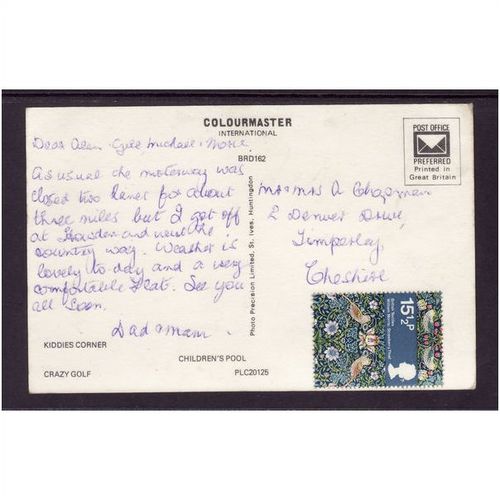 COLOURMASTER
INTERNATIONAL
POST OFFICE
PREFERRED
Printed in
Great Britain
BRD162
Dear Alan Michael
As usual the motorway was
closed two lanes for about
three miles but I got off
at Howden and went the
country way. Weather is
lovely to-day and a very
comfortable flat. See you
all soon.
Dad & Mam.
Photo Precision Limited, St. Ives, Huntingdon
Mr & Mrs A Chapman
2 Denver Drive,
Timperley,
Cheshire
15½P
KIDDIES CORNER
CHILDREN'S POOL
CRAZY GOLF
PLC20125